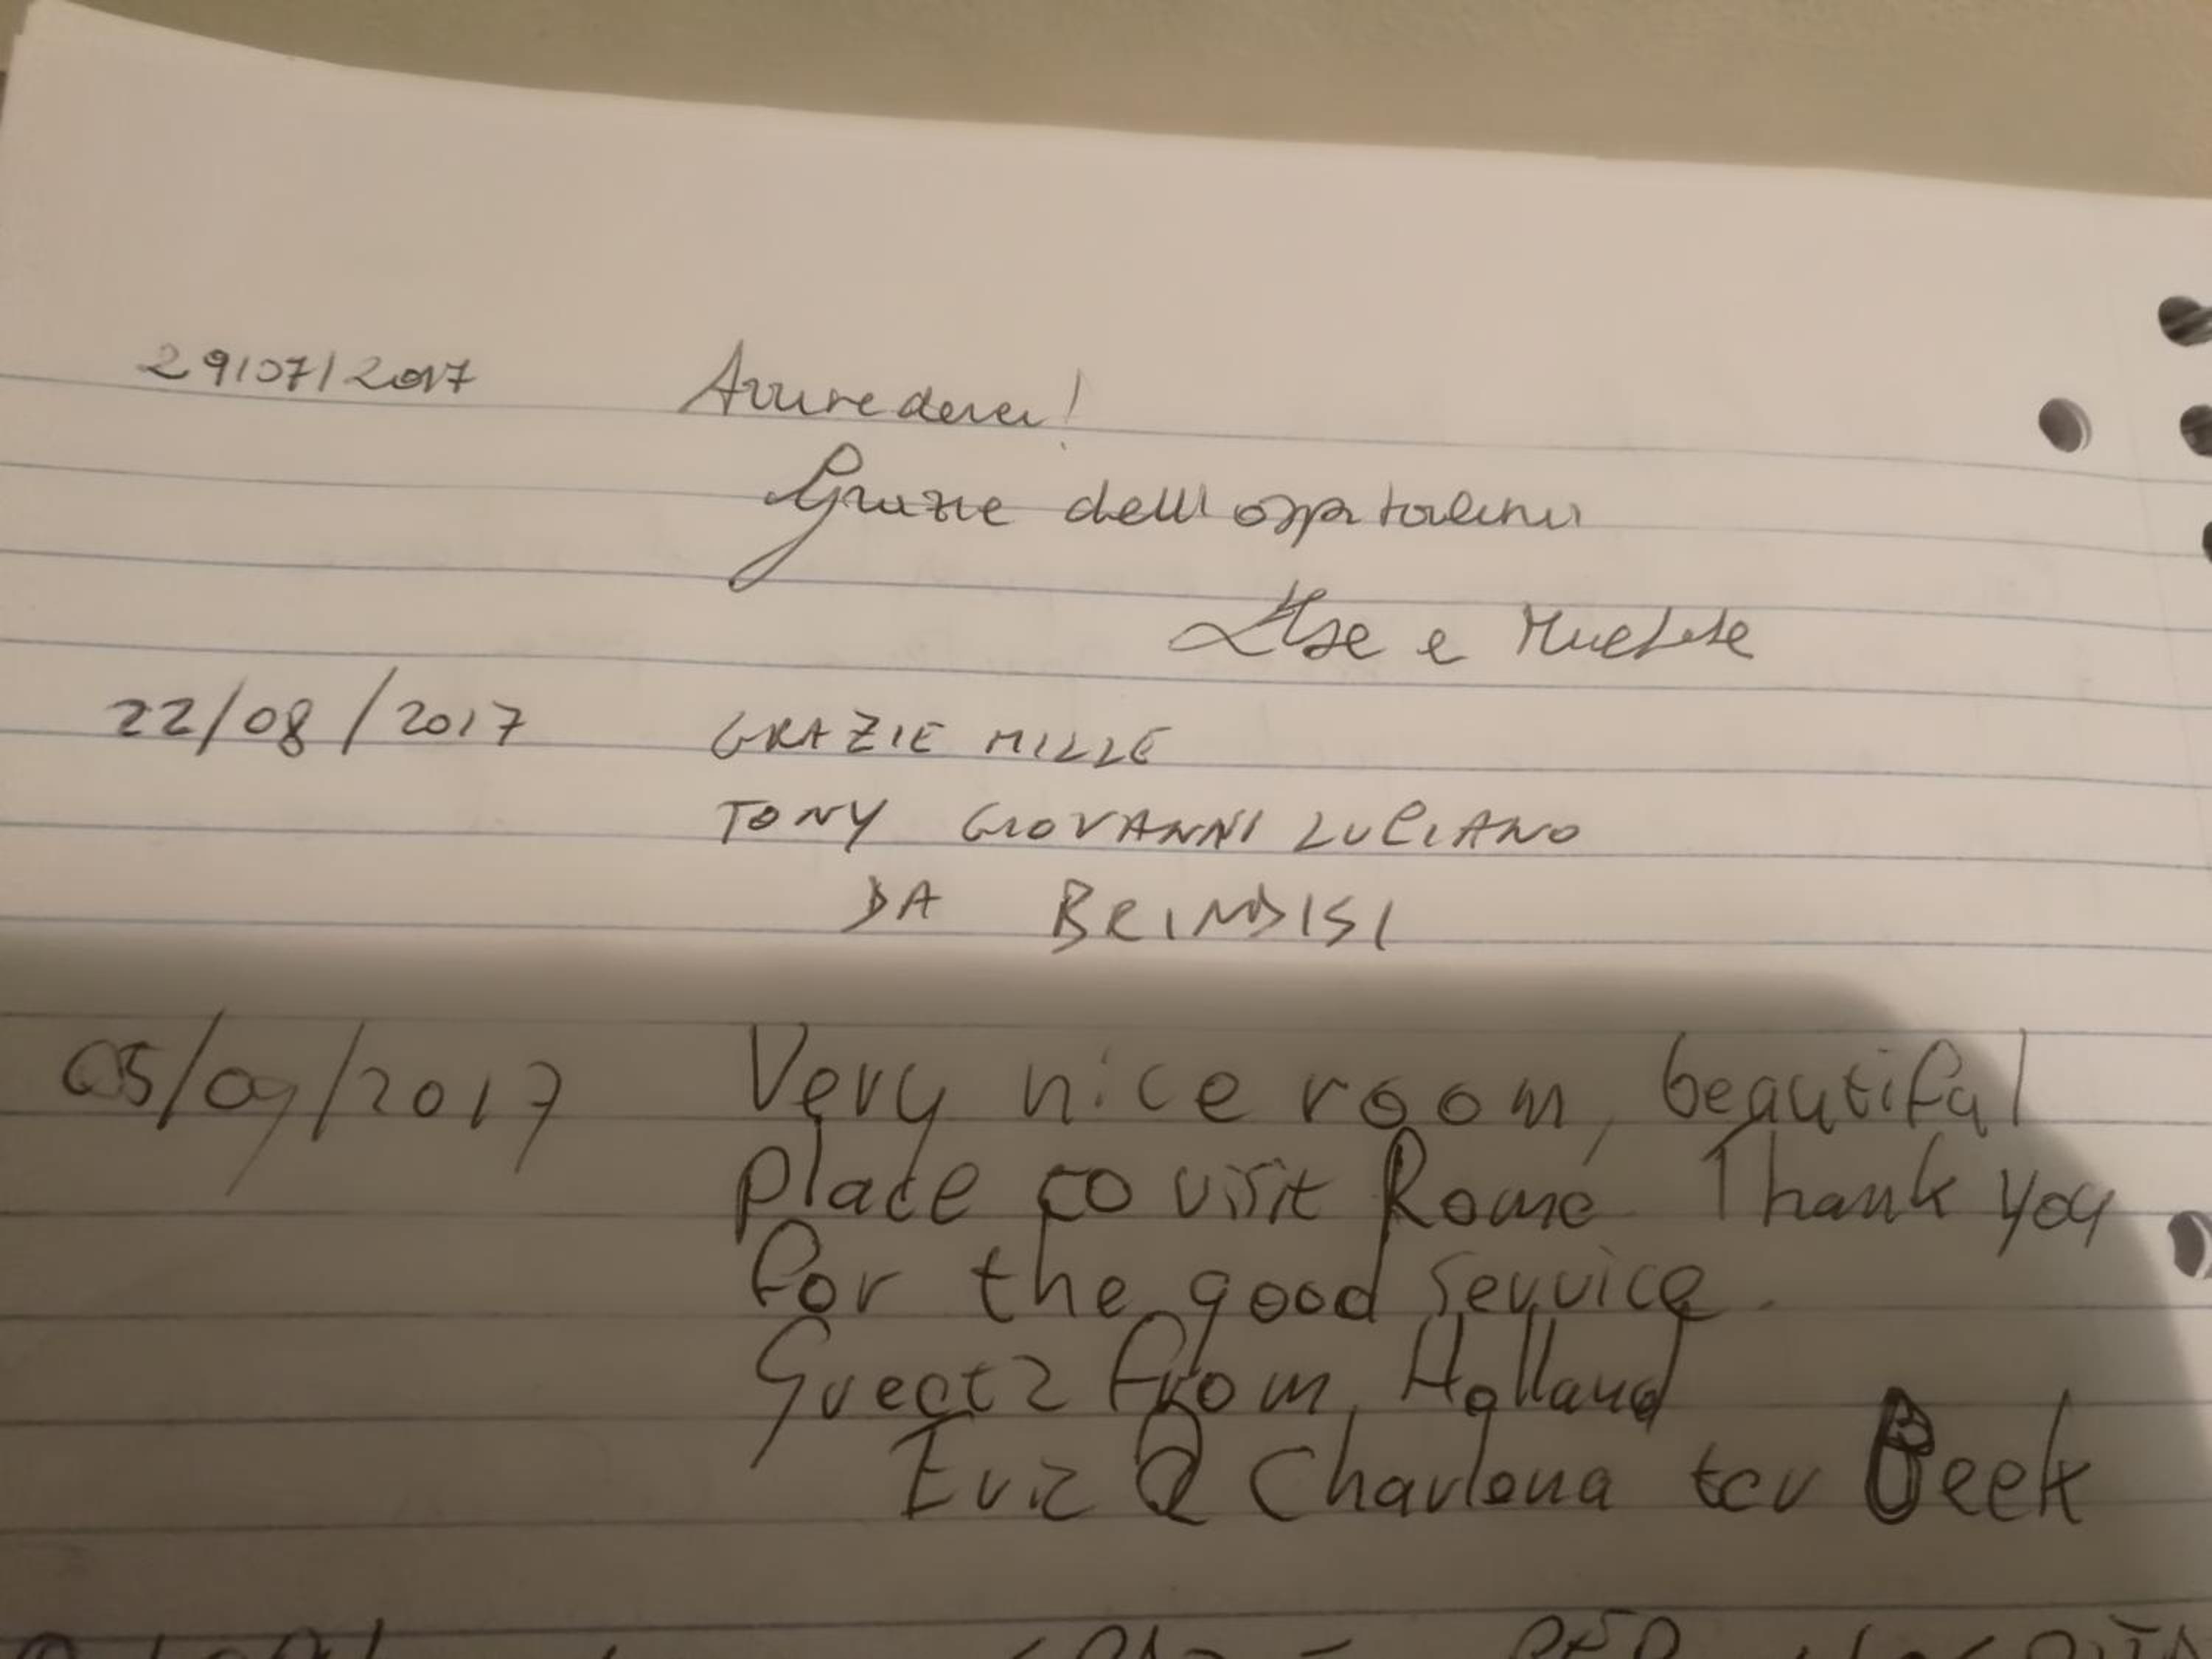 29/07/2017 Arrivederci!
Grazie dell'ospitalità
Ilse e
22/08/2017 GRAZIE MILLE
TONY GIOVANNI LUCIANO
DA BRINDISI
05/09/2017 Very nice room, beautiful
place to visit Rome. Thank you
for the good service.
Greetz from Holland
Eric & Charlona ter Beek